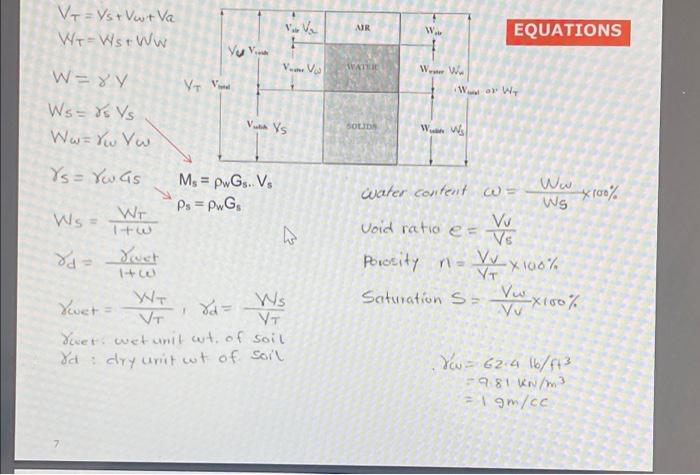 V_T = V_S + V_W + V_a
W_T = W_S + W_W
W = γ V
W_S = γ_S V_S
W_W = γ_W V_W
γ_S = γ_W G_S
M_s = ρ_wG_s.. V_s
ρ_s = ρ_wG_s
W_S = W_T / 1+ω
γ_d = γ_wet / 1+ω
γ_wet = W_T / V_T , γ_d = W_S / V_T
γ_wet: wet unit wt. of soil
γ_d : dry unit wt of soil
7
V_T V_total
V_v V_voids
V_air V_a
V_water V_W
V_solids V_S
AIR
WATER
SOLIDS
W_air
W_water W_W
W_total or W_T
W_solids W_S
EQUATIONS
water content ω = W_W / W_S ×100%
Void ratio e = V_V / V_S
Porosity n = V_V / V_T ×100%
Saturation S = V_W / V_V ×100%
γ_W = 62.4 lb/ft³
= 9.81 kN/m³
= 1 gm/cc